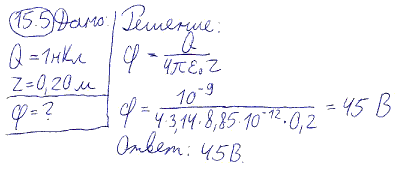 15.5 Дано:
Q = 1нКл
r = 0,20 м
φ = ?
Решение:
φ = Q / 4πε₀r
φ = 10⁻⁹ / 4·3,14·8,85·10⁻¹²·0,2 = 45 В
Ответ: 45В.